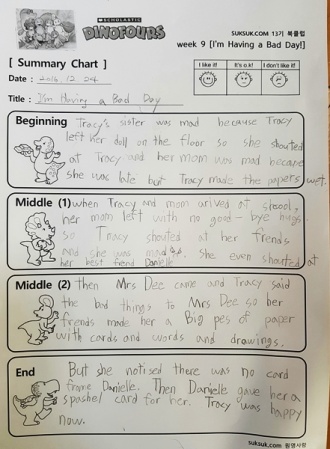 SCHOLASTIC
DINOFOURS
SUKSUK.COM 13기 북클럽
week 9 [I'm Having a Bad Day!]
[ Summary Chart ]
I like it!
It's o.k!
I don't like it!
Date : 2016. 12. 24
Title : I'm Having a Bad Day
Beginning
Tracy's sister was mad because Tracy
left her doll on the floor so she shouted
at Tracy and her mom was mad because
she was late but Tracy made the papers wet.
Middle (1)
when Tracy and mom arived at shcool,
her mom left with no good-bye hugs
so Tracy shouted at her frends
and she was mad. She even shouted at
her best fiend Danielle
Middle (2)
Then Mrs Dee came and Tracy said
the bad things to Mrs Dee so her
frends made her a Big pes of paper
with cards and words and drawings.
End
But she notised there was no card
frome Danielle. Then Danielle gave her a
spashel card for her. Tracy was happy
now.
suksuk.com 원영사랑